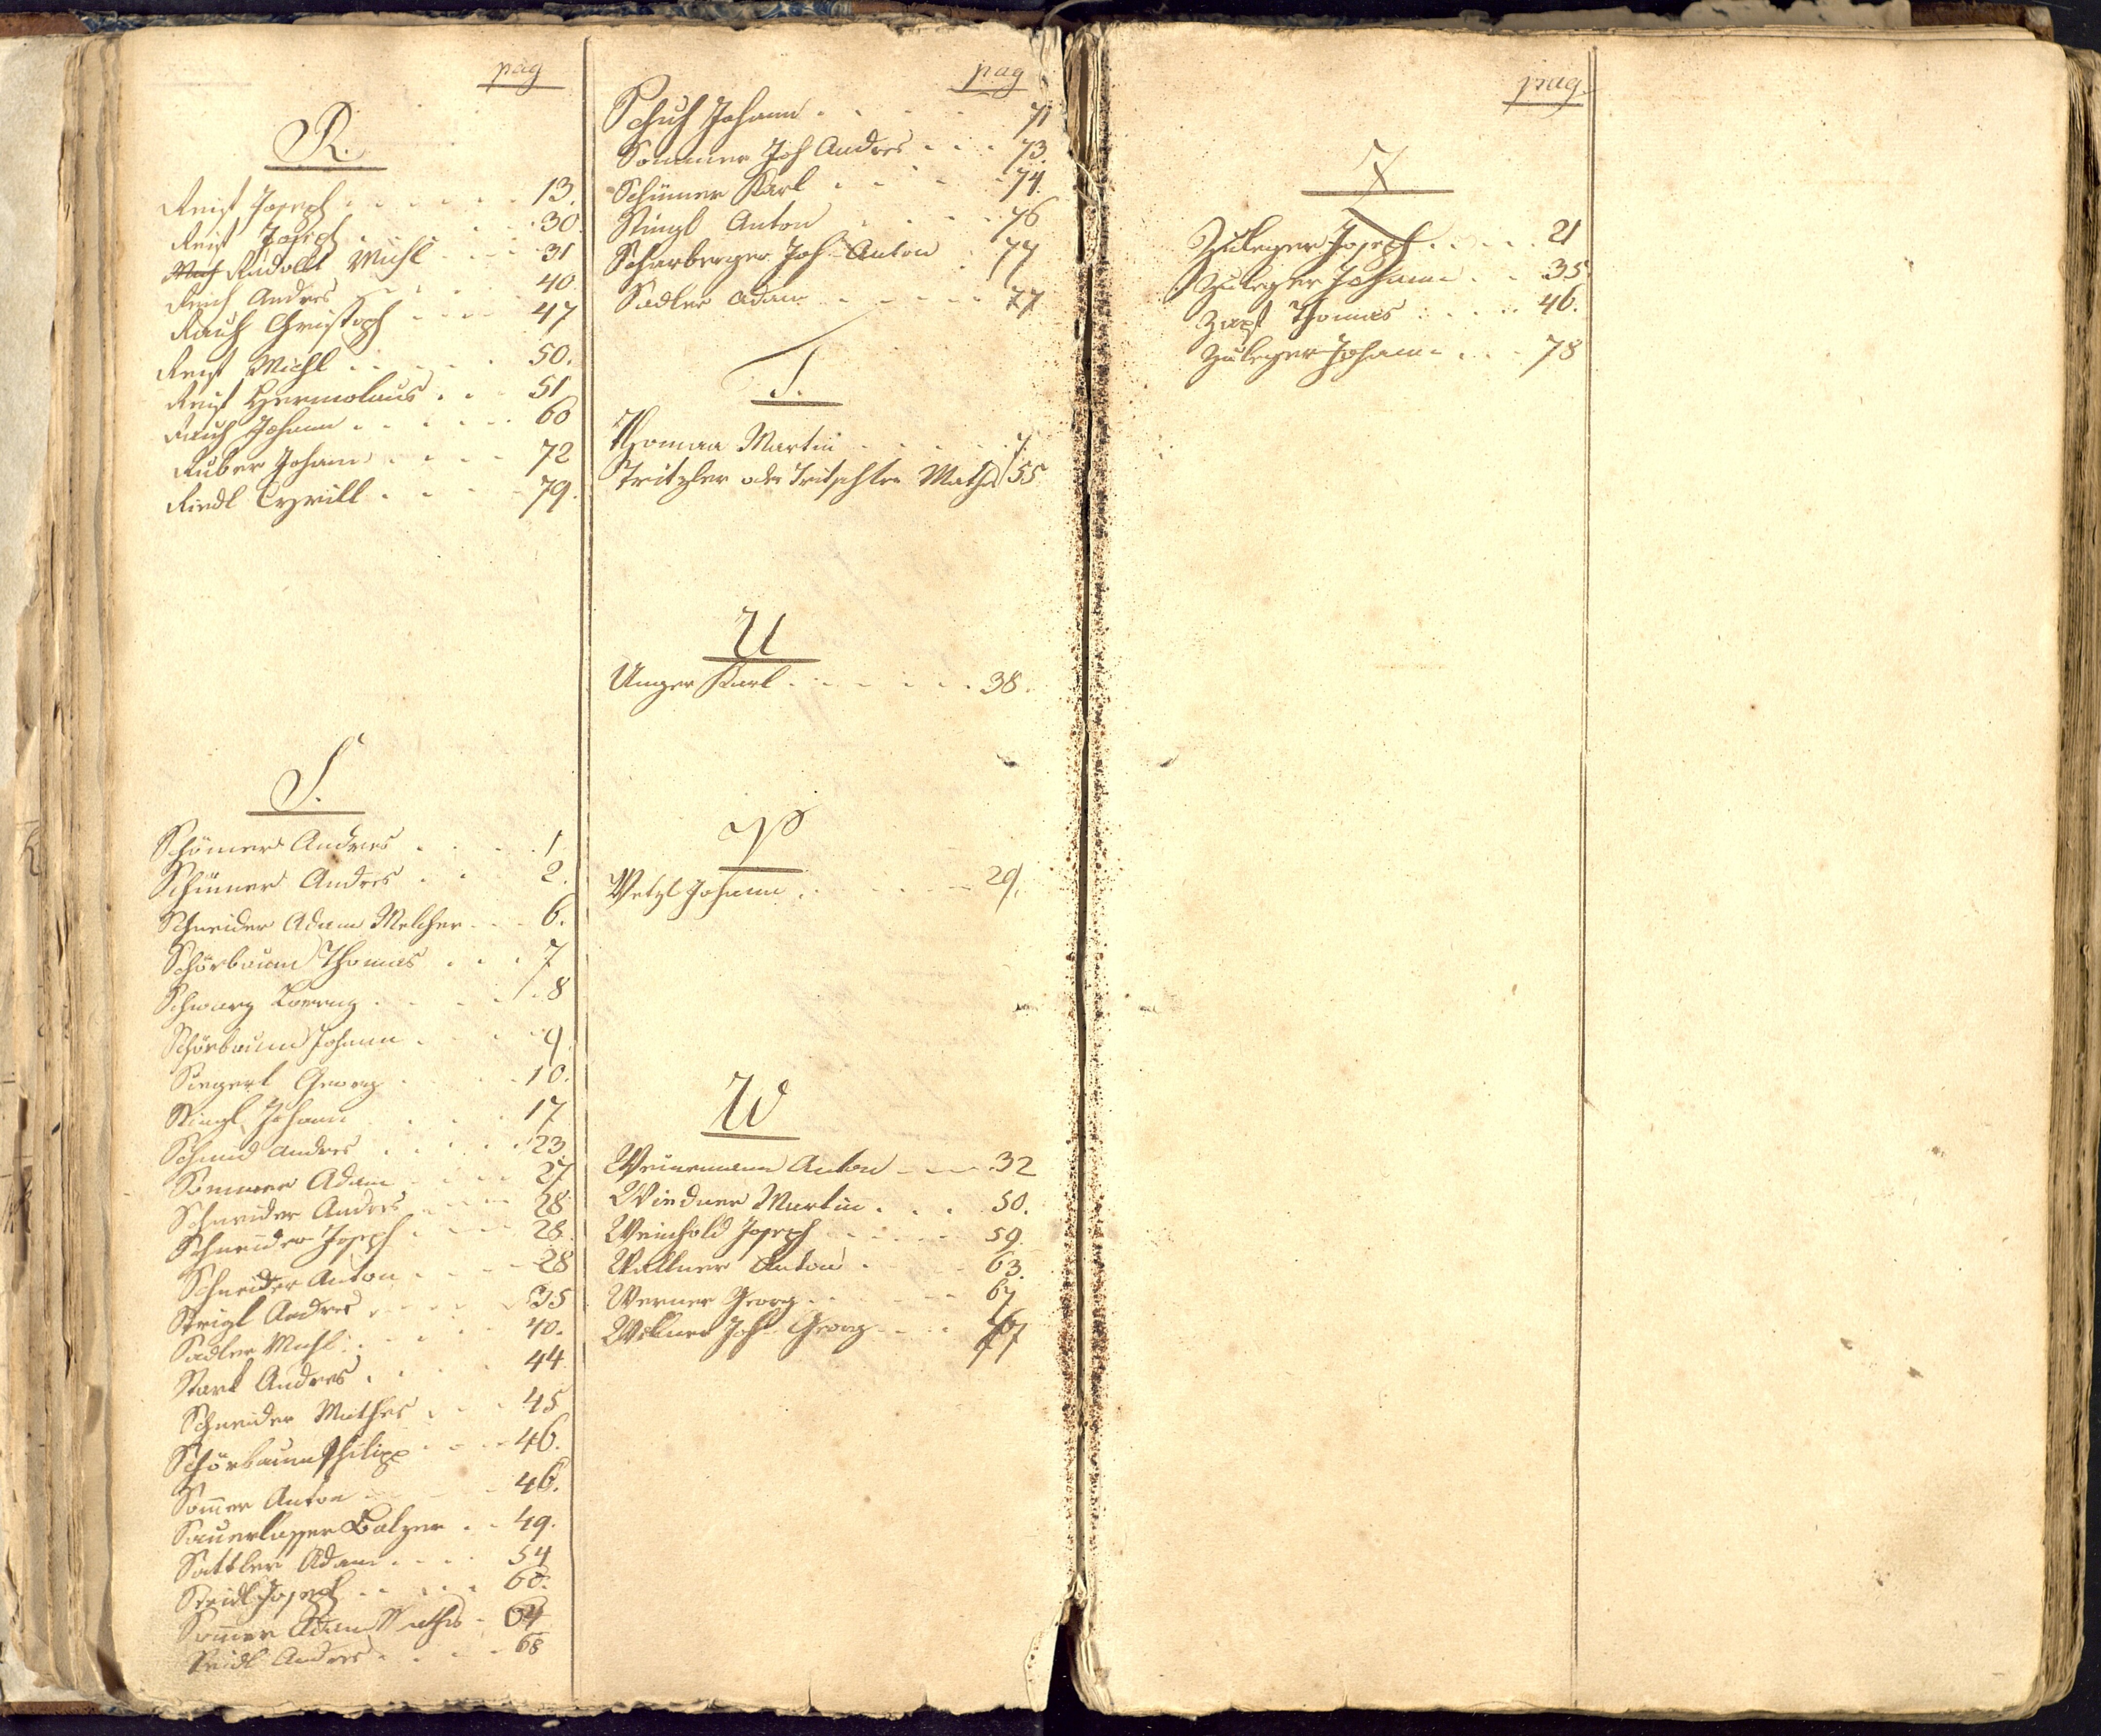 pag
R.
Reist Joseph 13.
Reist Joseph 30
Rudolst Michl 31
Reich Andres 40.
Rauch Christoph 47
Reist Michl 50.
Reist Hermolaus 51
Rauch Johann 60
Ruber Johann 72
Riedl Cyrill 79.
S.
Schömer Andres 1
Schimmer Andres 2.
Schneider Adam Melcher 6.
Schörbaum Thomas 7
Schwarz Lorenz 8
Schörbaum Johann 9.
Siegert Georg 10.
Stingl Johann 17
Schmid Andres 23.
Sommer Adam 27
Schneider Andres 28
Schneider Joseph 28.
Schneider Anton 28
Steigl Andres 35
Sadler Michl 40.
Stark Andres 44
Schneider Mathes 45
Schörbaum Philipp 46.
Som̄er Anton 46.
Balzer 49.
Sattler Adam 54
Seidl Joseph 60.
Som̄er Adam Mathes 64
Seidl Andres 68
pag
Schuh Johann 71
Sommer Joh Andres 73.
Schimmer Karl 74.
Stingl Anton 76
Scharberger Joh Anton 77
Sadler Adam 77
T.
Thomaa Martin 7.
Tritzler oder Tritschler Mathes 55
U
Unger Karl 38.
V
Vetzl Johann 29.
W
Weinmann Anton 32
Wiedner Martin 50.
Weinhold Joseph 59.
Wellner Anton 63.
Werner Georg 67
Wellner Joh Georg 77
pag.
Z
Zuleger Joseph 21
Zuleger Johann 35
Zapf Thomas 46.
Zuleger Johann 78